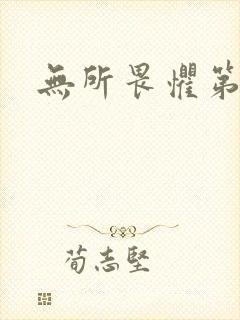 無所畏懼第
荀志堅